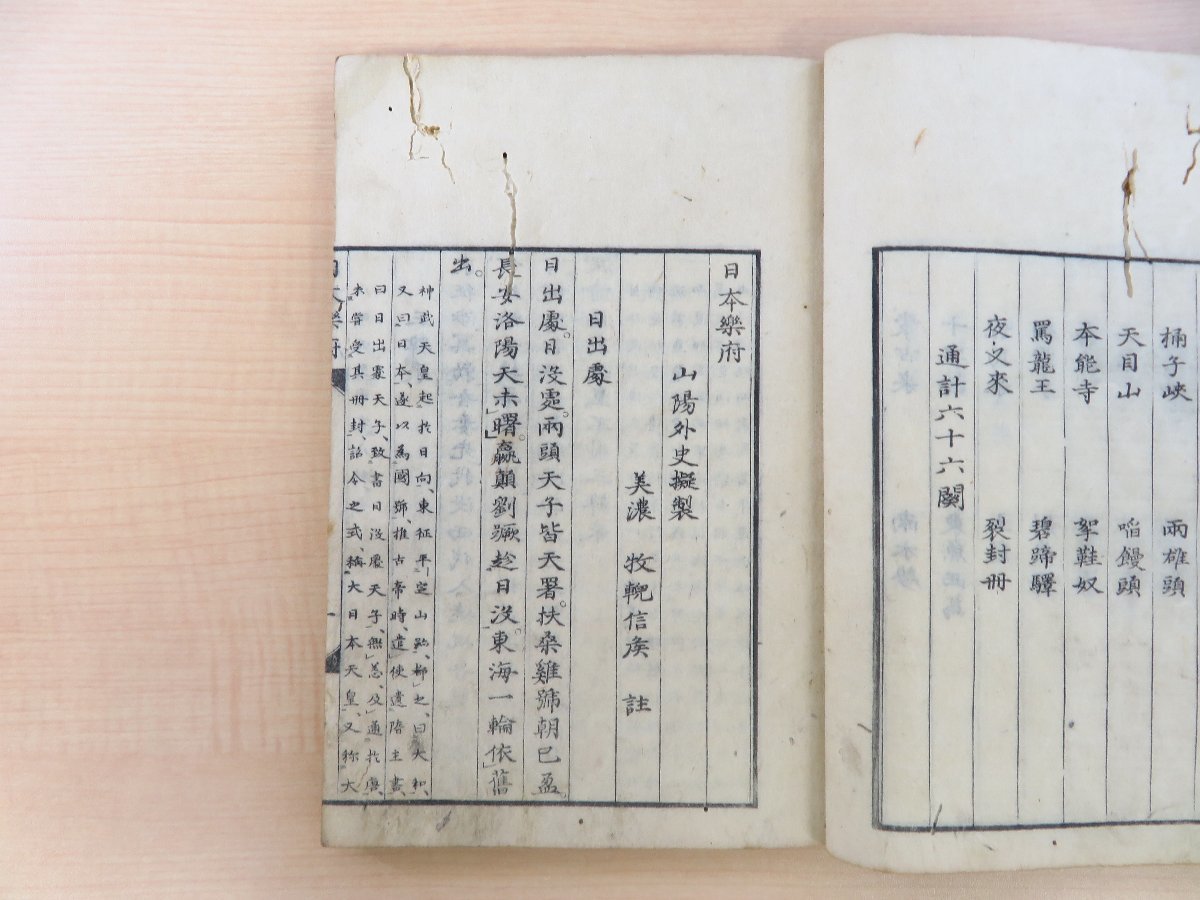 桶子峽 兩雄頭
天目山 啗饅頭
本能寺 挐鞋奴
罵龍王 碧蹄驛
夜叉來 裂封冊
通計六十六闋
日本樂府
山陽外史擬製
美濃 牧輗信矦 註
日出處
日出處。日沒處。兩頭天子皆天署。扶桑雞號朝已盈。
長安洛陽天未曙。嬴顛劉蹶趁日沒。東海一輪依舊
出。
神武天皇起於日向、東征平定山跡、都之、曰大和、
又曰日本、遂以為國號、推古帝時、遣使遺隋主書、
曰日出處天子、致書日沒處天子、無恙、及通於唐、
未嘗受其冊封、詔令之式、稱大日本天皇、又称大